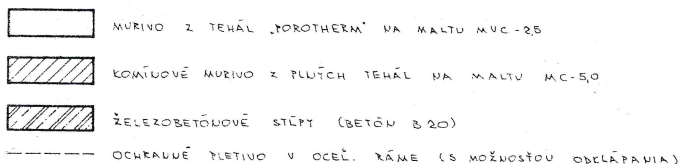 MURIVO Z TEHÁL „POROTHERM" NA MALTU MVC-2,5
KOMÍNOVÉ MURIVO Z PLNÝCH TEHÁL NA MALTU MC-5,0
ŽELEZOBETÓNOVÉ STĹPY (BETÓN B 20)
OCHRANNÉ PLETIVO V OCEĽ. RÁME (S MOŽNOSŤOU ODCLÁPANIA)